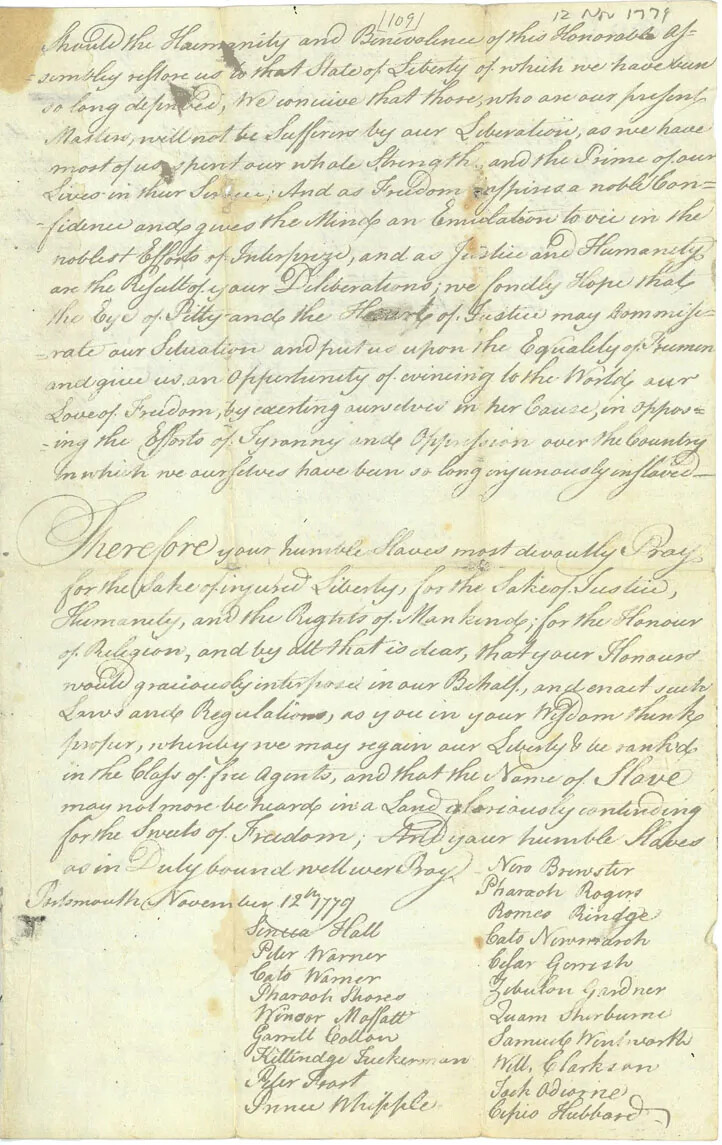 [109]
12 Nov 1779
Should the Haemanity and Benevolence of this Honorable As=
=sembley restore us to that State of Liberty of which we have been
so long deprived, We conceive that those, who are our present
Masters, will not be Sufferers by our Liberation, as we have
most of us spent our whole Strength, and the Prime of our
Lives in their Service; And as Freedom inspires a noble Con=
=fidence and gives the Mind an Emulation to vie in the
noblest Efforts of Interprize, and as Justice and Humanity
are the Result of your Deliberations; we fondly Hope that
the Eye of Pitty and the Heart of Justice may Commise=
=rate our Situation and put us upon the Equality of Freemen
and give us an Opportunity of evincing to the World our
Love of Freedom, by exerting ourselves in her Cause, in oppos=
=ing the Efforts of Tyranny and Oppression over the Country
in which we ourselves have been so long injuriously inslaved—
Therefore your humble Slaves most devoutly Pray
for the Sake of injured Liberty, for the Sake of Justice,
Humanity, and the Rights of Mankind; for the Honour
of Religion, and by all that is dear, that your Honours
would graciously interpose in our Behalf, and enact such
Laws and Regulations, as you in your Wisdom think
proper, whereby we may regain our Liberty & be rank'd
in the Class of free Agents, and that the Name of Slave
may not more be heard in a Land gloriously contending
for the Sweets of Freedom; And your humble Slaves
as in Duty bound will ever Pray.
Portsmouth November 12th 1779
Nero Brewster
Pharaoh Rogers
Romeo Rindge
Cato Newmarch
Cesar Gerrish
Zebulon Gardner
Quam Sherburne
Samuel Wentworth
Will, Clarkson
Jack Odiorne
Cipio Hubbard
Seneca Hall
Peter Warner
Cato Warner
Pharaoh Shores
Winsor Moffatt
Garrett Colton
Kittindge Tuckerman
Peter Frost
Prince Whipple